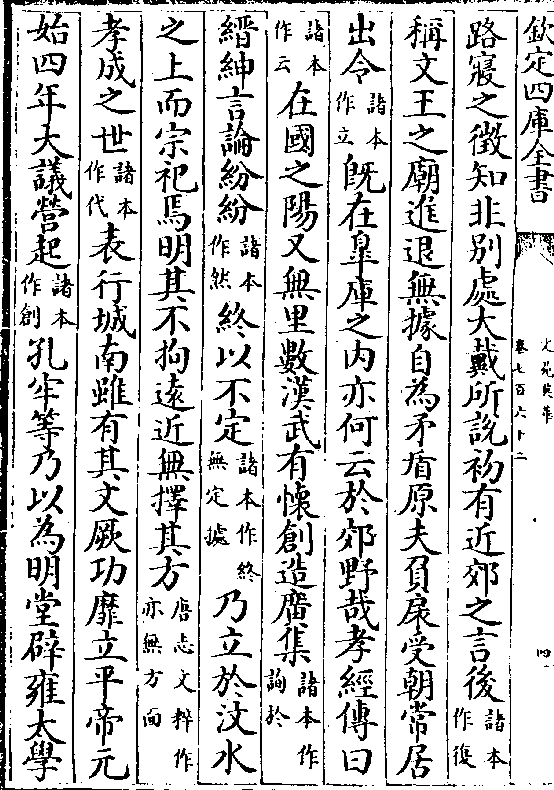 欽定四庫全書
文苑英華
卷七百六十二
四
路寢之徵知非別處大戴所說初有近郊之言後諸本作復
稱文王之廟進退無據自為矛盾原夫負扆受朝常居
出令諸本作立既在皐庫之内亦何云於郊野哉孝經傳曰
諸本作云在國之陽又無里數漢武有懷創造廣集諸本作詢於
縉紳言論紛紛諸本作然終以不定諸本作終無定據乃立於汶水
之上而宗祀焉明其不拘遠近無擇其方唐志文粹作亦無方面
孝成之世諸本作代表行城南雖有其文厥功靡立平帝元
始四年大議營起諸本作創孔牢等乃以為明堂辟雍太學